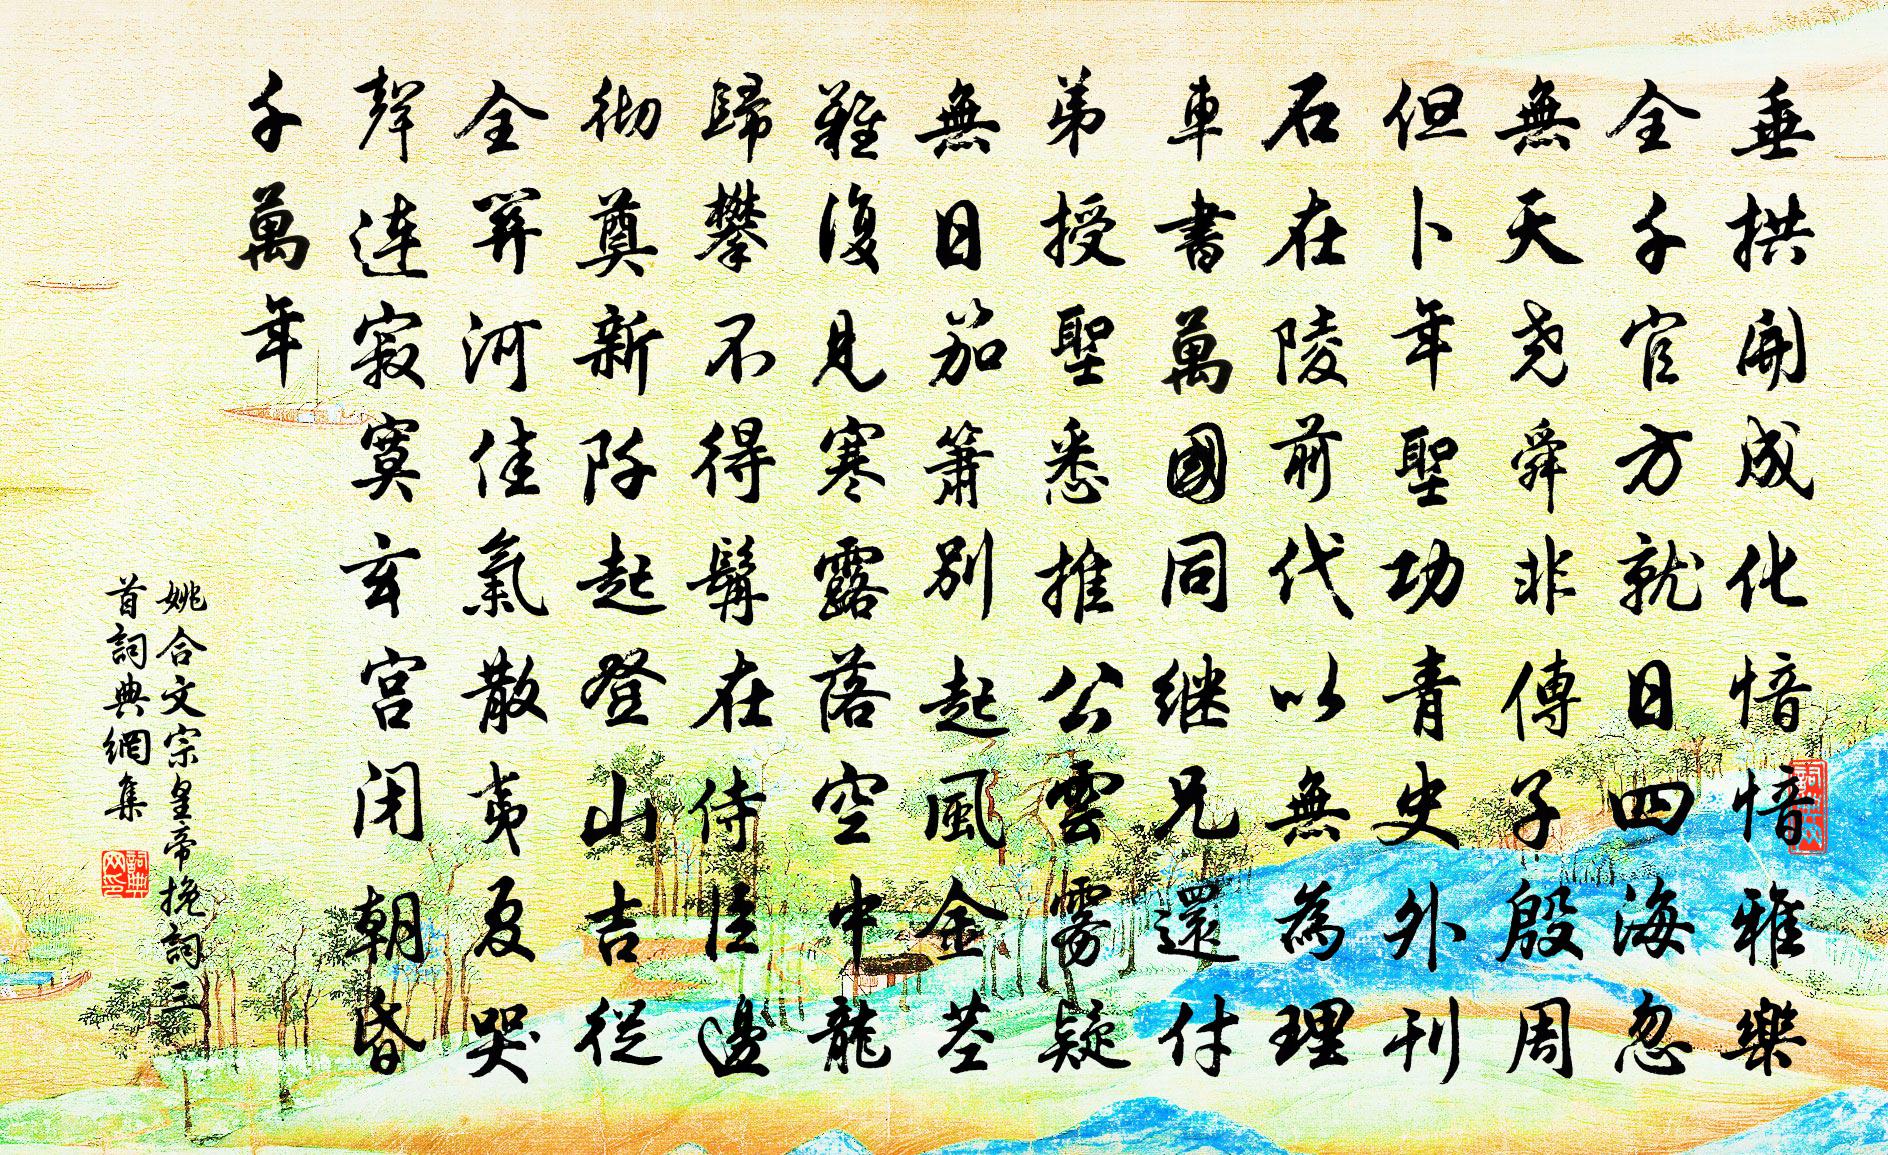 垂拱開成化愔愔雅樂
全千官方就日四海忽
無天堯舜非傳子殷周
但卜年聖功青史外刊
石在陵前代以無為理
車書萬國同继兄還付
弟授聖悉推公雲霧疑
無日笳簫别起風金莖
難復見寒露落空中龍
歸攀不得髯在侍臣邊
彻奠新阡起登山吉從
全葬河佳氣散夷夏哭
聲连寂寞玄宫闭朝昏
千萬年
姚合文宗皇帝挽詞三
首詞典網集
詞典
网印